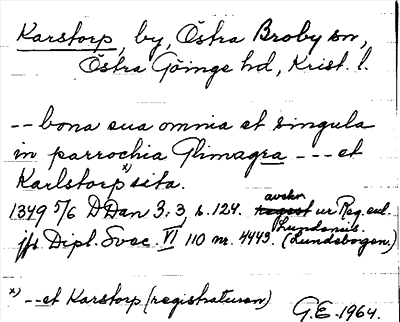 Karstorp, by, Östra Broby sn,
Östra Göinge hd, Krist. l.
-- bona sua omnia et singula
in parrochia Glimagra --- et
Karlstorp x) sita.
1349 5/6 DDan 3. 3, s. 124. avskr. ur Reg. eccl. Lundensis.
jfr Dipl. Svec. VI 110 nr. 4443. (Lundebogen.)
x) --et Karstorp (registraturen)
G.E. 1964.